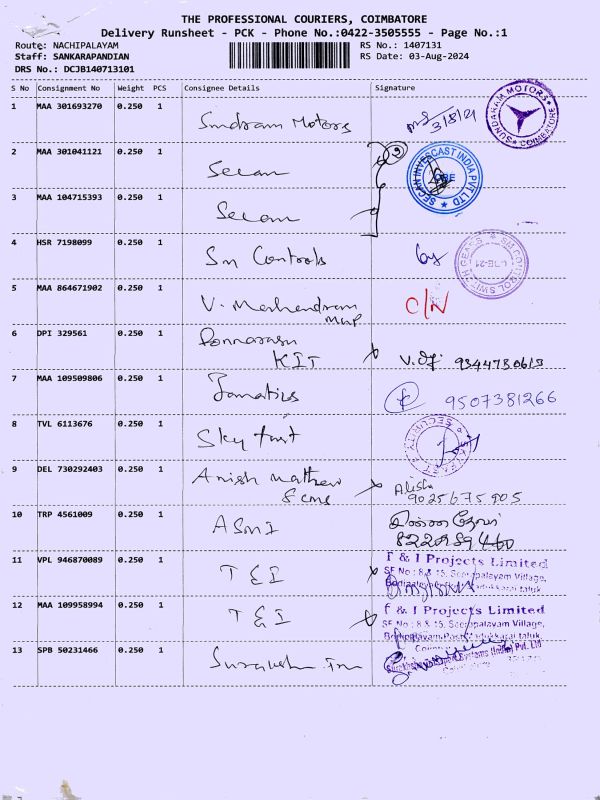 THE PROFESSIONAL COURIERS, COIMBATORE
Delivery Runsheet - PCK - Phone No.:0422-3505555 - Page No.:1
Route: NACHIPALAYAM
RS No.: 1407131
Staff: SANKARAPANDIAN
RS Date: 03-Aug-2024
DRS No.: DCJB140713101
S No Consignment No Weight PCS Consignee Details Signature
1 MAA 301693270 0.250 1
Sundram Motors 3/8/21
SUNDARAM MOTORS
COIMBATORE
2 MAA 301041121 0.250 1
Secan
SECAN INVESCAST INDIA PVT LTD
3 MAA 104715393 0.250 1
Secan
4 HSR 7198099 0.250 1
Sm Controls
SM CONTROL SWITCH GEARS
5 MAA 864671902 0.250 1
V. C/N
6 DPI 329561 0.250 1
KIT
7 MAA 109509806 0.250 1
9507381266
8 TVL 6113676 0.250 1
Sky
SECURITY
9 DEL 730292403 0.250 1
Anish Mathew
9025675905
10 TRP 4561009 0.250 1
ASMI
11 VPL 946870089 0.250 1
T & I
T & I Projects Limited
SF No : 8 & 15, Seerapalayam Village,
12 MAA 109958994 0.250 1
T & I
T & I Projects Limited
SF No : 8 & 15, Seerapalayam Village,
13 SPB 50231466 0.250 1
Systems (India) Pvt. Ltd